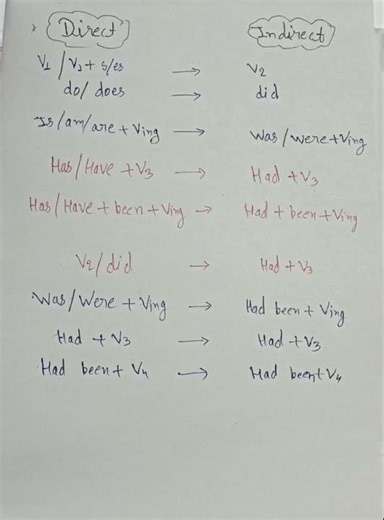 Direct Indirect
V1 / V1 + s/es → V2
do/ does → did
Is/am/are + Ving → Was/were + Ving
Has/Have + V3 → Had + V3
Has/Have + been + Ving → Had + been + Ving
V2/did → Had + V3
Was/Were + Ving → Had been + Ving
Had + V3 → Had + V3
Had been + V4 → Had been + V4